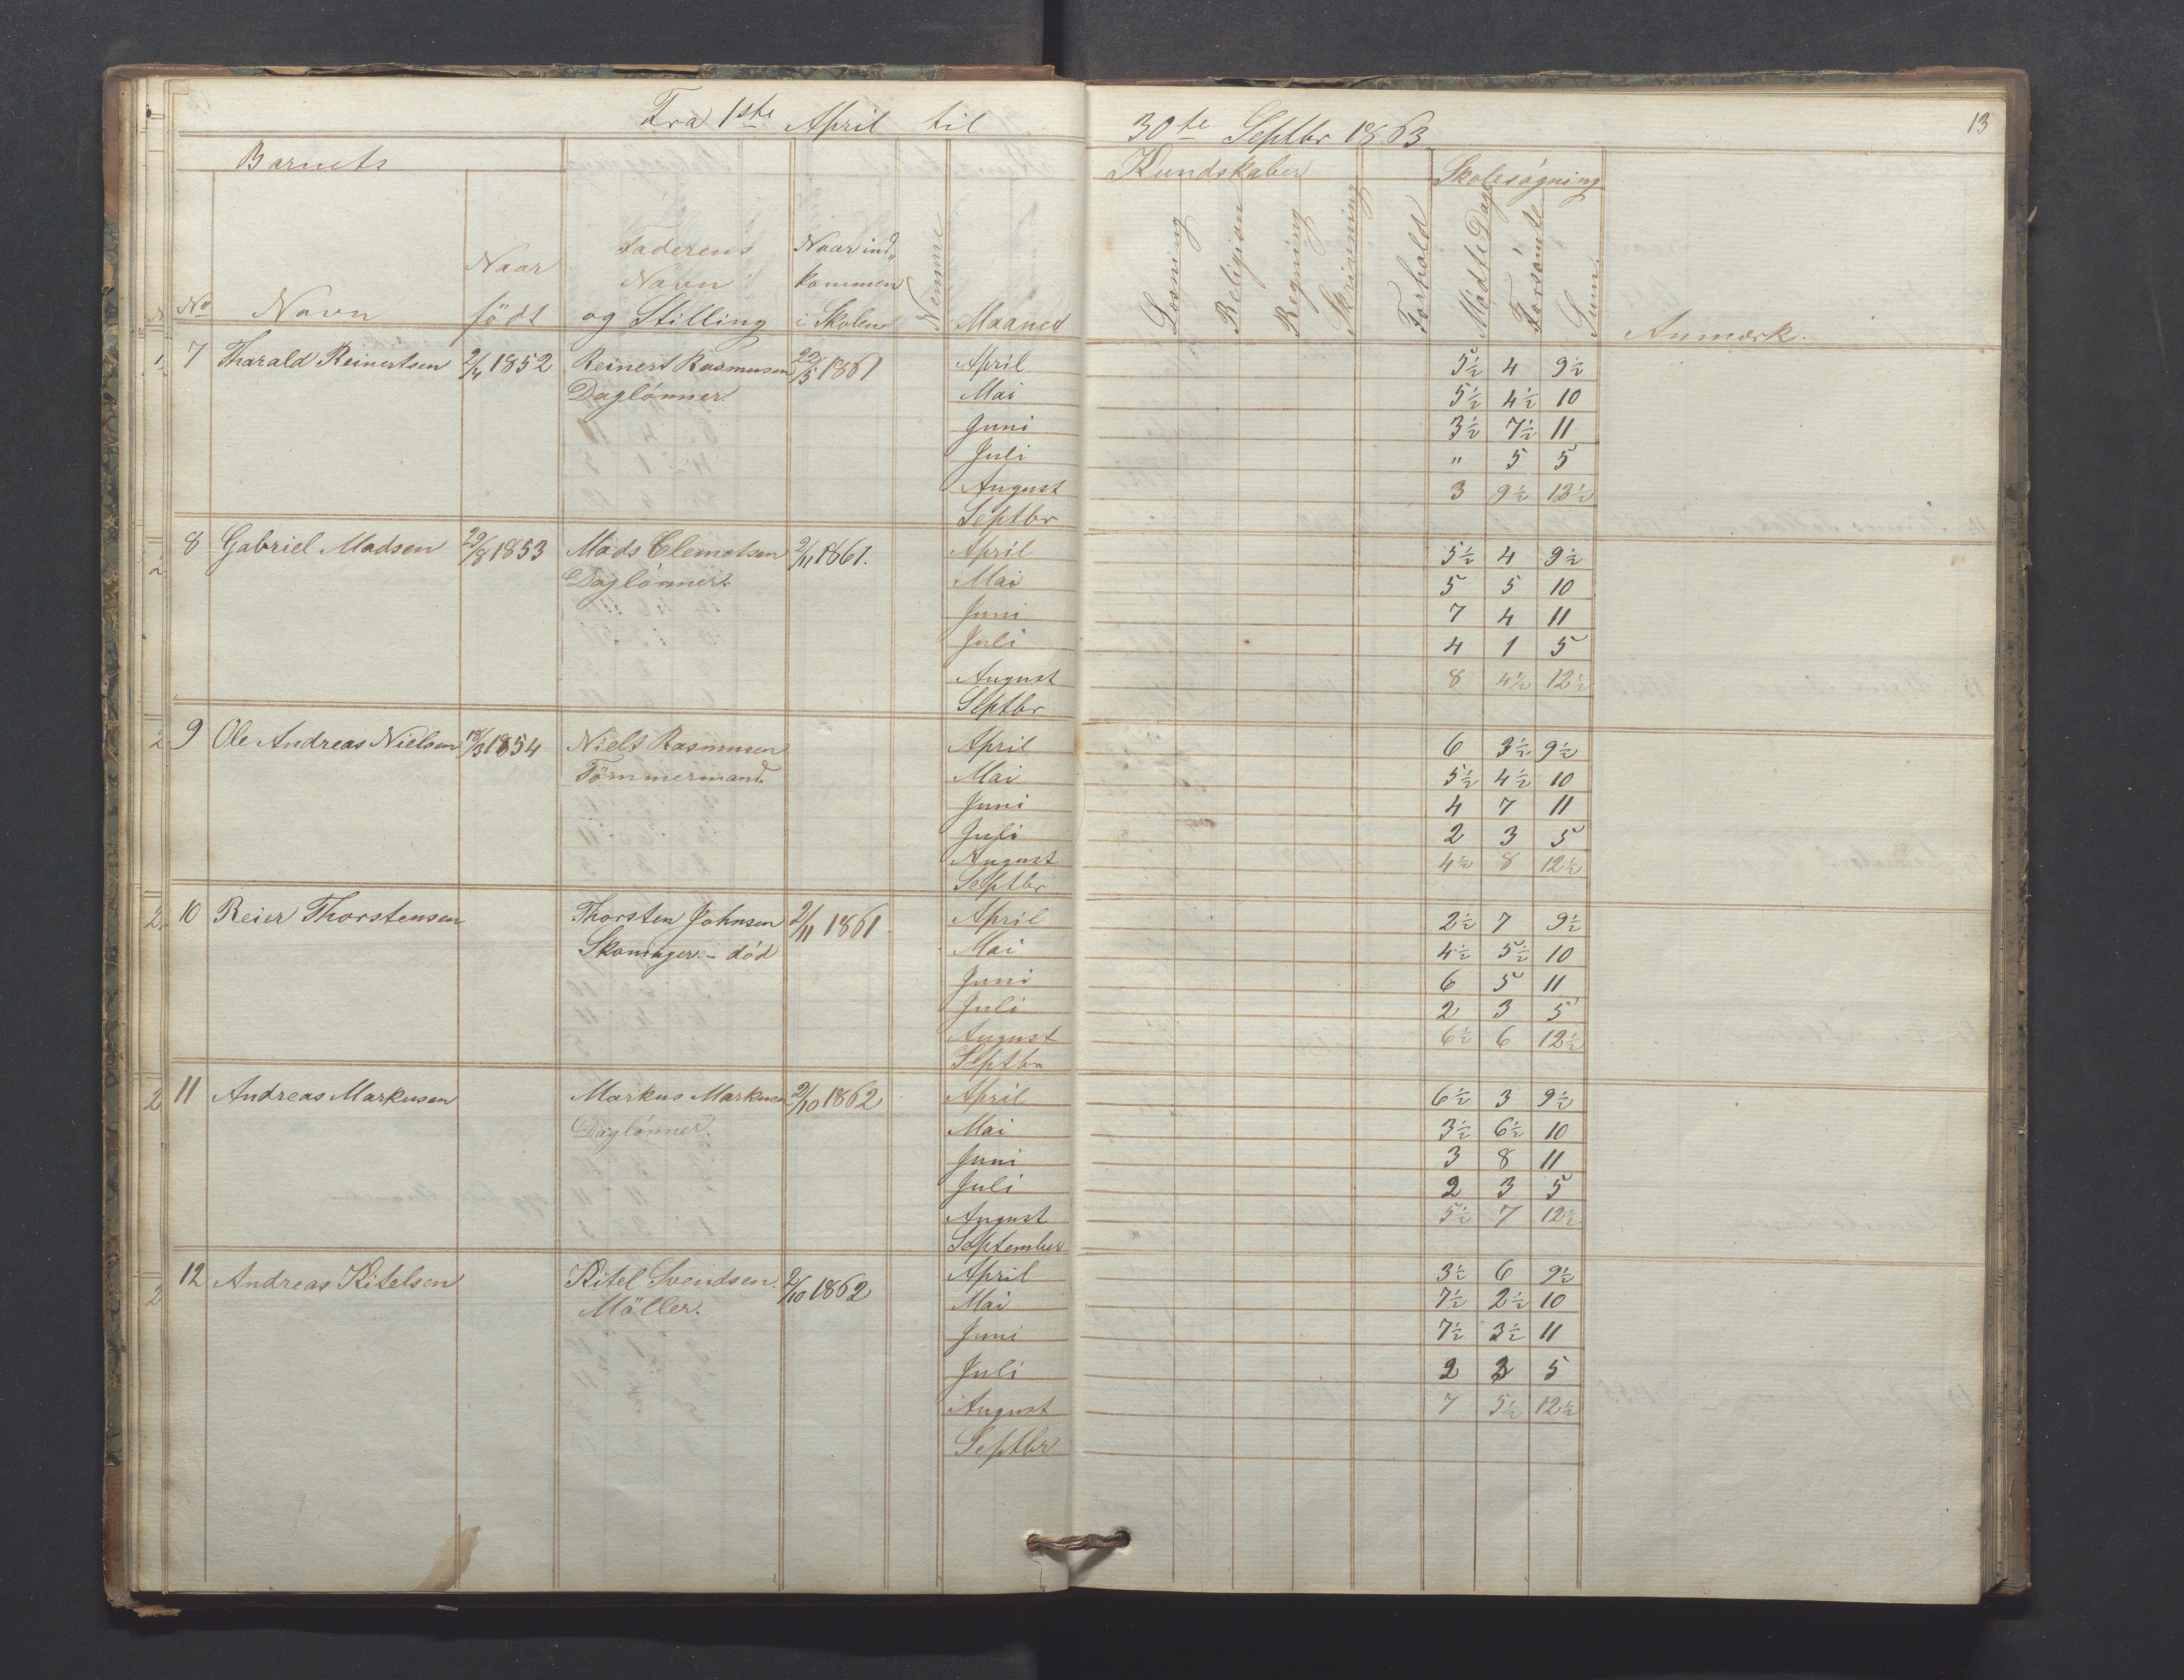 Fra 1ste April til 30te Septbr 1863
13
Barnets
Kundskaber
Skolesøgning
No Navn
Naar født
Faderens Navn og Stilling
Naar ind„ kommen i Skolen
Nemme
Maaned
Læsning
Religion
Regning
Skrivning
Forhold
Mødte Dage
Forsømte
Sum.
Anmærk.
7 Tharald Reinertsen 2/4 1852 Reinert Rasmusen 22/5 1861 April 5½ 4 9½
Daglönner. Mai 5½ 4½ 10
Juni 3½ 7½ 11
Juli " 5 5
August 3 9½ 12½
Septbr
8 Gabriel Madsen 29/8 1853 Mads Clemetsen 2/11 1861. April 5½ 4 9½
Daglönner. Mai 5 5 10
Juni 7 4 11
Juli 4 1 5
August 8 4½ 12½
Septbr
9 Ole Andreas Nielsen 18/3 1854 Niels Rasmusen April 6 3½ 9½
Tömmermand. Mai 5½ 4½ 10
Juni 4 7 11
Juli 2 3 5
August 4½ 8 12½
Septbr
10 Reier Thorstensen Thorsten Johnsen 2/11 1861 April 2½ 7 9½
Skomager. – död Mai 4½ 5½ 10
Juni 6 5 11
Juli 2 3 5
August 6½ 6 12½
Septbr
11 Andreas Markusen Markus Markusen 2/10 1862 April 6½ 3 9½
Daglönner. Mai 3½ 6½ 10
Juni 3 8 11
Juli 2 3 5
August 5½ 7 12½
September
12 Andreas Kitelsen Kitel Svendsen. 2/10 1862 April 3½ 6 9½
Möller. Mai 7½ 2½ 10
Juni 7½ 3½ 11
Juli 2 3 5
August 7 5½ 12½
Septbr